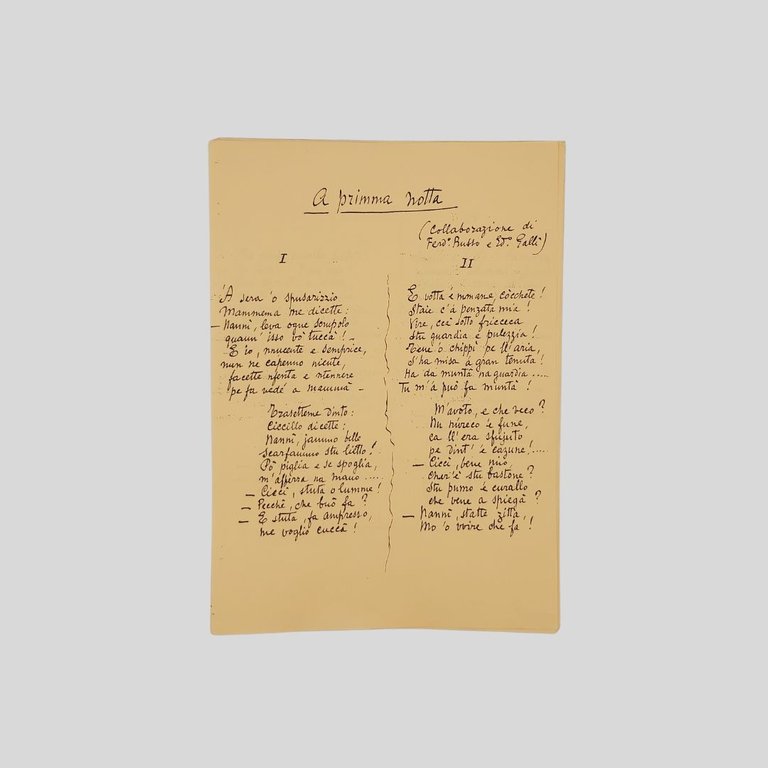 A primma notta
(Collaborazione di
Ferdº. Russo e Edº. Galli)
I
'A sera 'o spusarizzio
Mammema me dicette:
— Nannì, leva ogne scrupolo
quann' isso vò tuccà! —
E io, nnucente e semprice,
nun ne capenno niente,
facette nfenta e ntennere
pe fa vedé a mammà —
Trasetteme dinto:
Ciccillo dicette:
Nannì, jammo bello
scarfammo stu lietto!
Pò piglia e se spoglia,
m'afferra na mano ....
— Ciccì, stuta o lumme!
— Pecché, che buò fa?
— E stuta, fa ampresso,
me voglio cuccà!
II
E votta 'e mmane, còcchete!
Staie c'a penzata mia!
Vire, ccà sotto fricceca
stu guardia 'e pulezzia!
Tene 'o chippì pe ll'aria,
s'ha misa 'a gran tenuta!
Ha da muntà na guardia .....
Tu m'a può fa muntà!
M'avoto, e che veco?
Nu nureco 'e fune,
ca ll'era sfujuto
pe dint' 'e cazune, ....
— Ciccì, bene mio,
cher'è stu bastone?
Stu pumo 'e curallo
che vene a spiegà?
— Nannì, statte zitta,
Mo 'o vvire che fa!